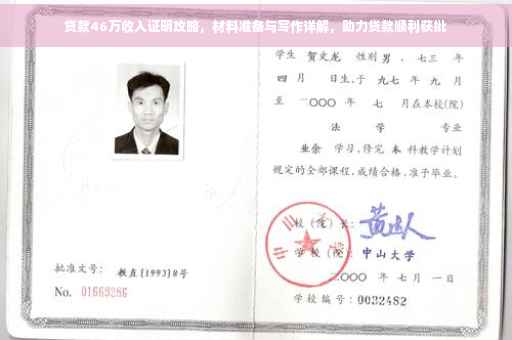 贷款46万收入证明攻略，材料准备与写作详解，助力贷款顺利获批
学生 贺文龙 性别 男 、七三 年
四 月 日生，于 九七 年 九 月
至 二〇〇〇 年 七 月在本校(院)
法 学 专业
业余 学习，修完 本 科教学计划
规定的全部课程，成绩合格，准予毕业。
校（院）长：
学校（院）：中山大学
二〇〇〇 年 七 月 一 日
学校编号：0032482
批准文号：教直[1993]8号
No. 01669286